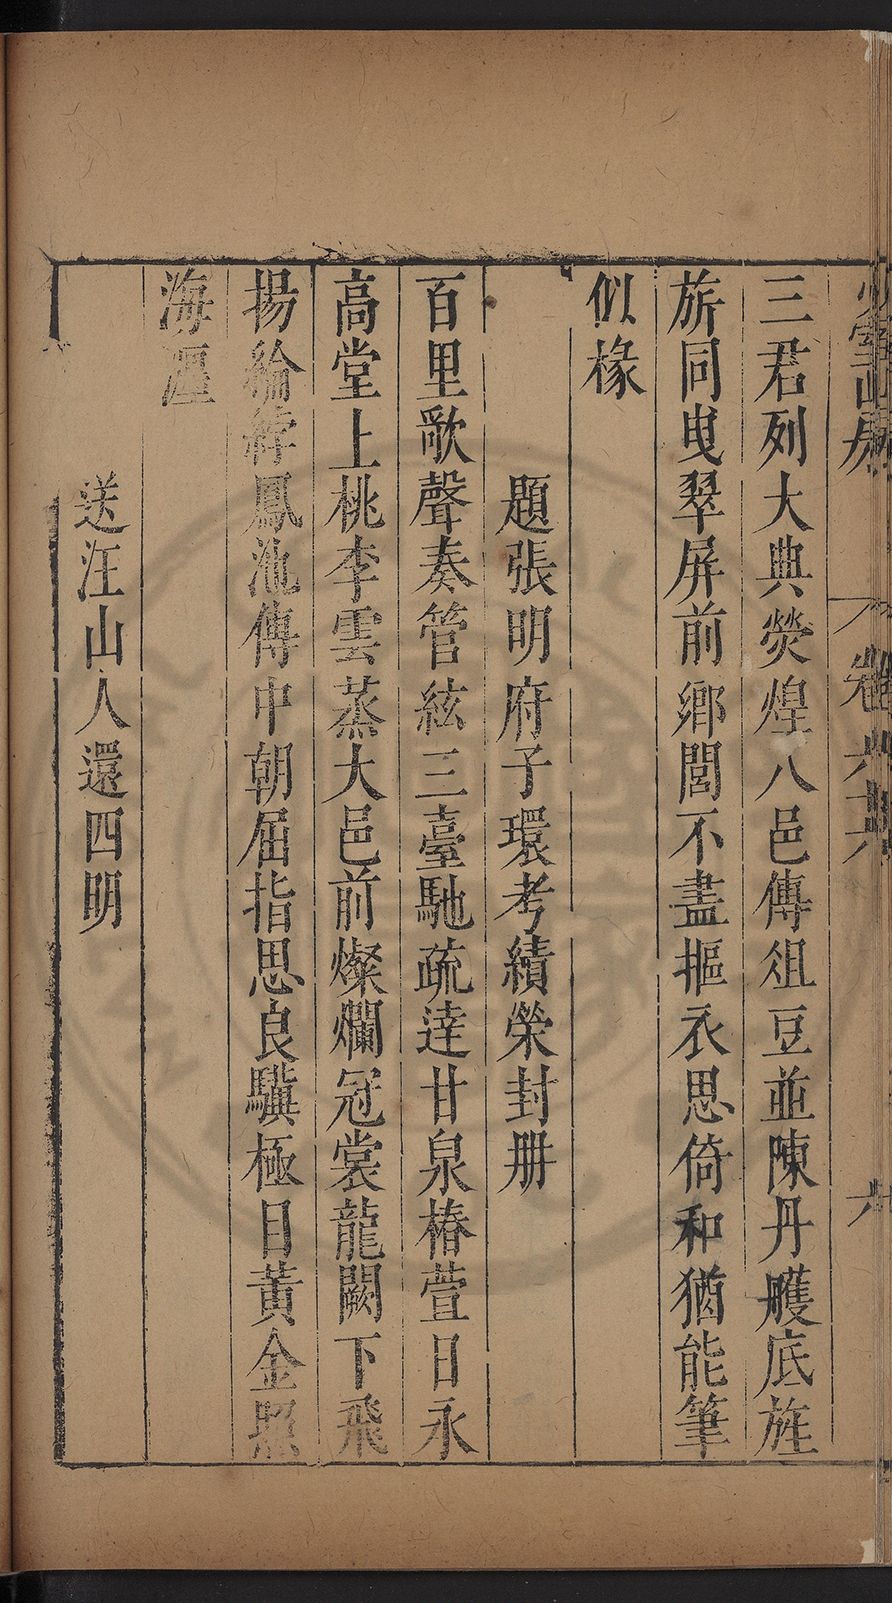 少室山房
卷六十六
六
三君列大典熒煌八邑傳俎豆並陳丹雘底旌
旂同曳翠屏前鄉閭不盡摳衣思倚和猶能筆
似椽
題張明府子環考績榮封册
百里歌聲奏管絃三臺馳疏達甘泉椿萱日永
高堂上桃李雲蒸大邑前燦爛冠裳龍闕下飛
揚綸綍鳳池傳中朝屈指思良驥極目黃金照
海
送汪山人還四明